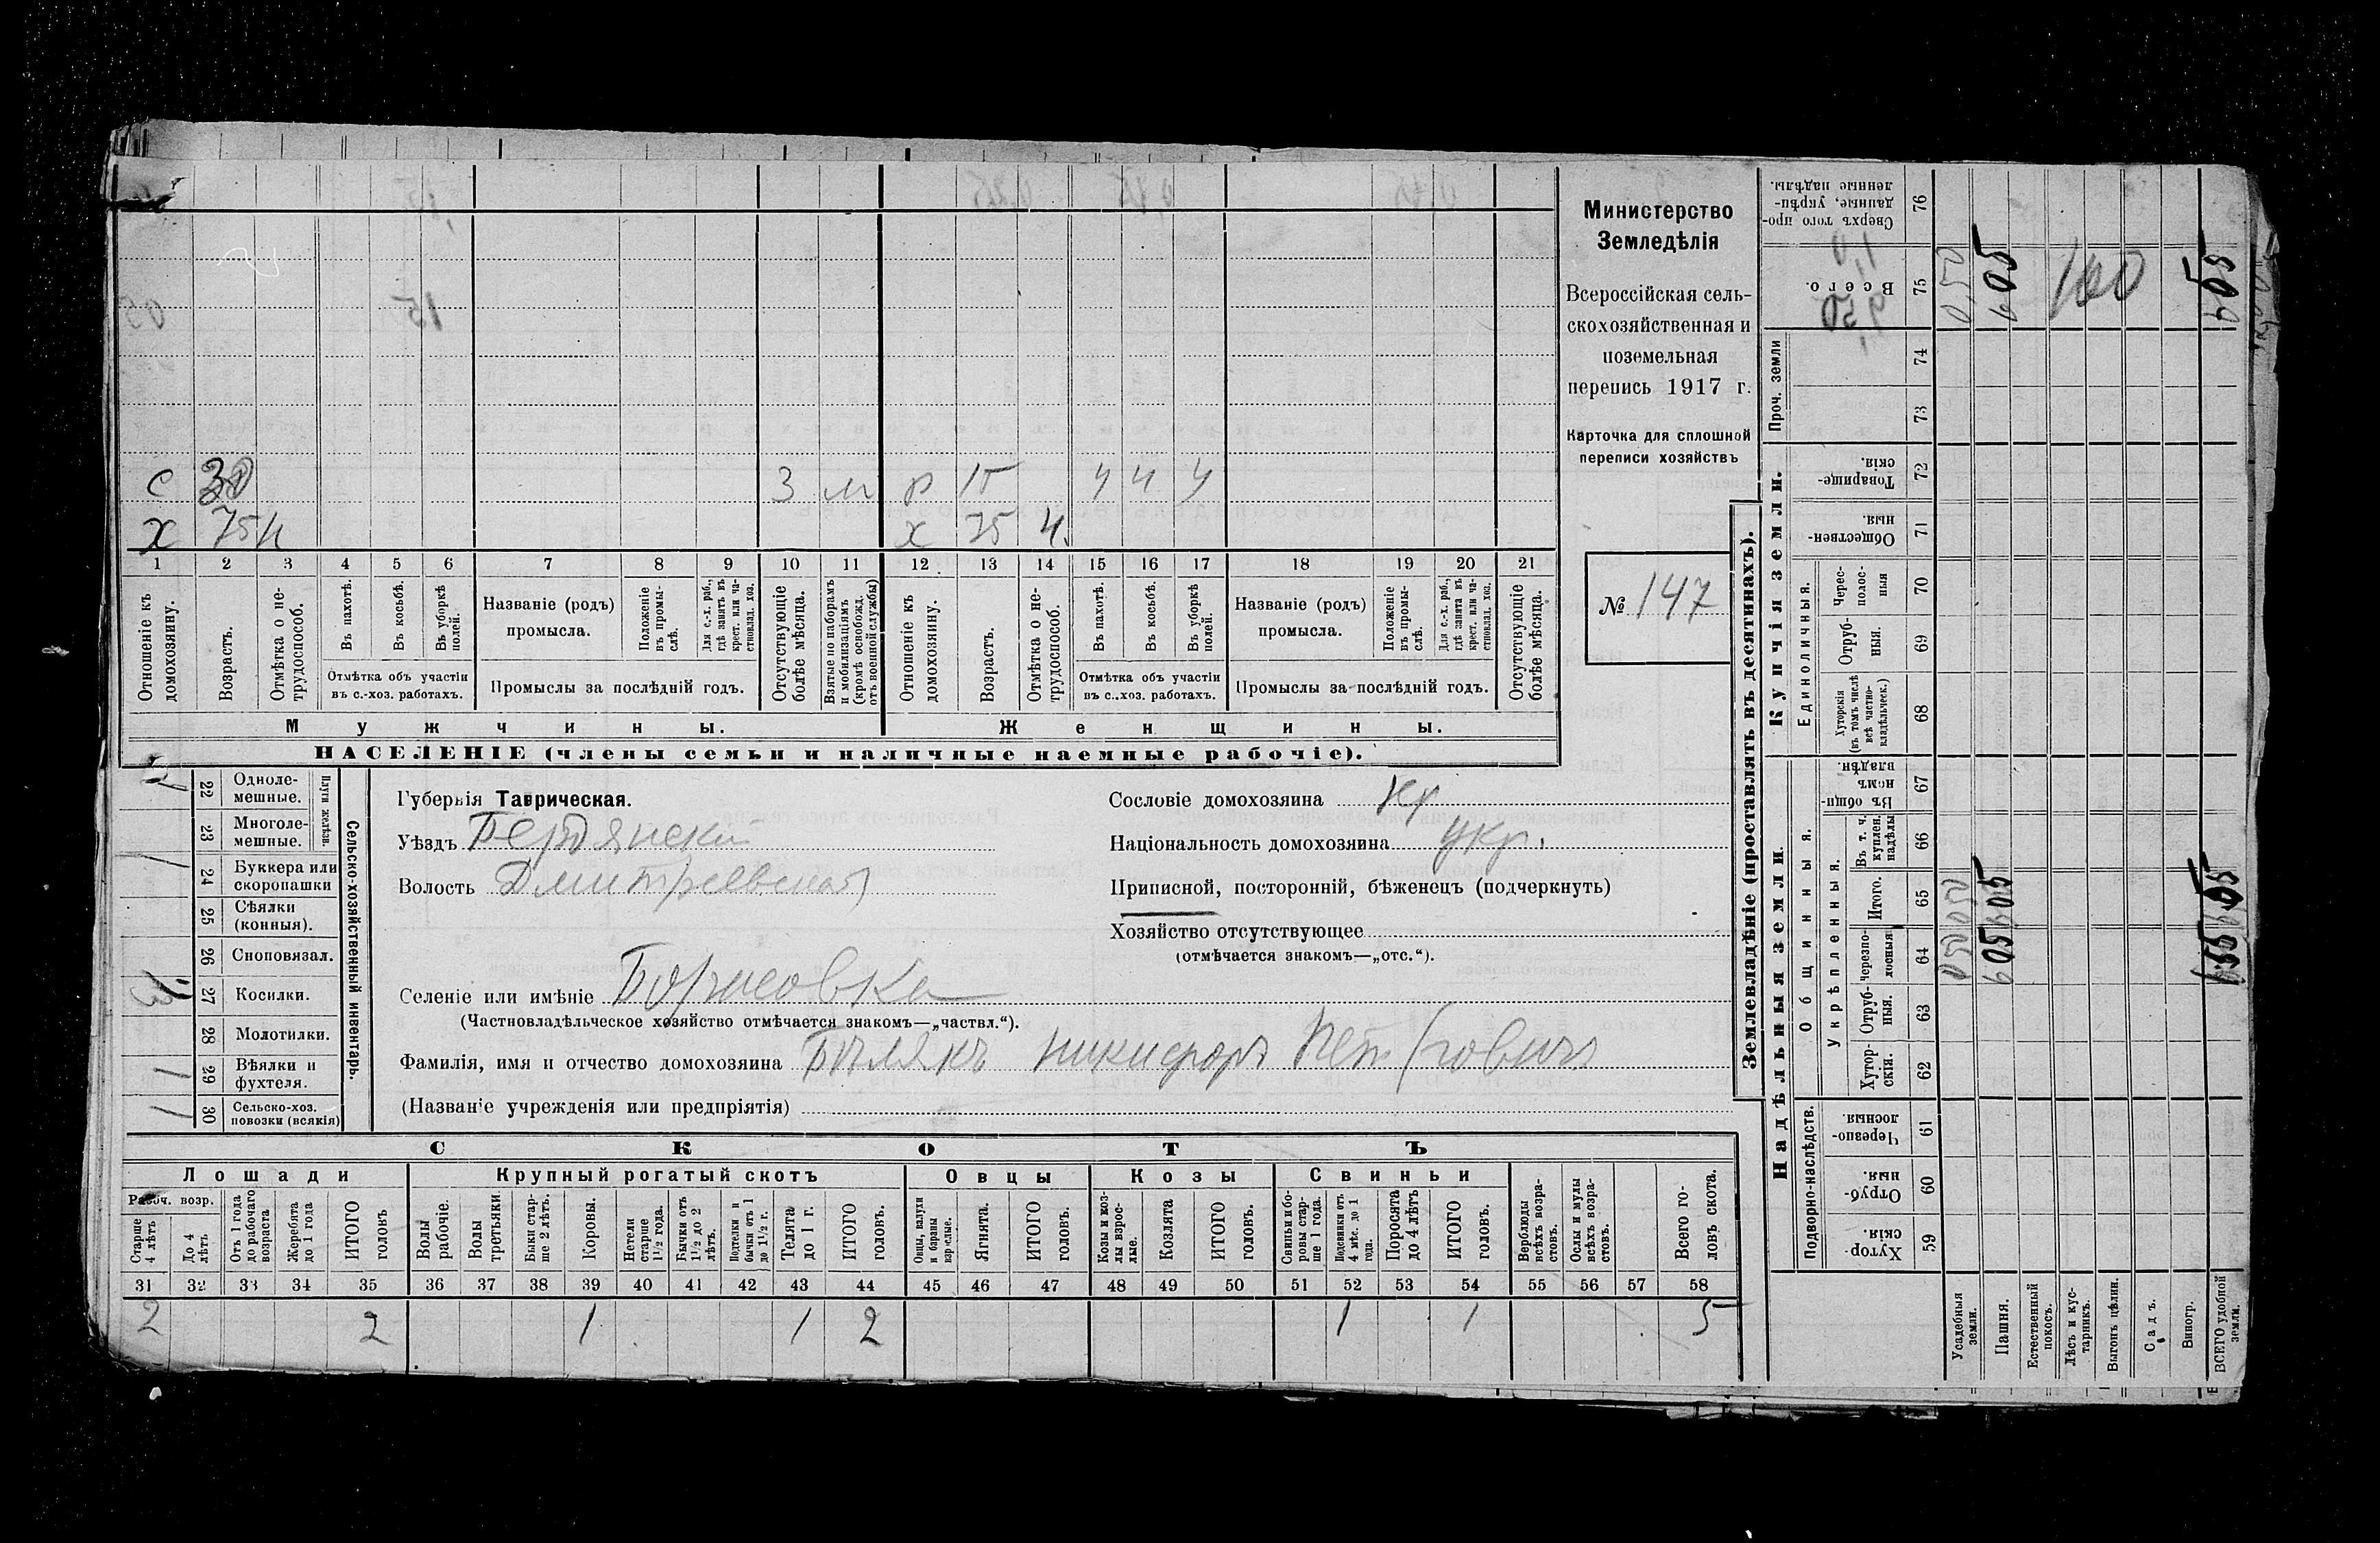 Министерство
Земледѣлія
Всероссійская сель-
скохозяйственная и
поземельная
перепись 1917 г.
Карточка для сплошной
переписи хозяйствъ
№ 147
с 30 3 м р 15 ч ч ч
х 75 н х 75 н.
1 2 3 4 5 6 7 8 9 10 11 12 13 14 15 16 17 18 19 20 21
Отношеніе къ домохозяину.
Возрастъ.
Отмѣтка о не-трудоспособ.
Въ пахотѣ.
Въ косьбѣ.
Въ уборкѣ полей.
Отмѣтка объ участіи
въ с.-хоз. работахъ.
Названіе (родъ)
промысла.
Положеніе въ промы-слѣ.
Для с.-х. раб., гдѣ занятъ въ крест. или ча-стновлад. хоз.
Промыслы за послѣдній годъ.
Отсутствующіе болѣе мѣсяца.
Взятые по наборамъ и мобилизаціямъ (кромѣ освобожд. отъ военной службы)
Отношеніе къ домохозяину.
Возрастъ.
Отмѣтка о не-трудоспособ.
Въ пахотѣ.
Въ косьбѣ.
Въ уборкѣ полей.
Отмѣтка объ участіи
въ с.-хоз. работахъ.
Названіе (родъ)
промысла.
Положеніе въ промы-слѣ.
Для с.-х. раб., гдѣ занята въ крест. или ча-стновлад. хоз.
Промыслы за послѣдній годъ.
Отсутствующіе болѣе мѣсяца.
Мужчины. Женщины.
НАСЕЛЕНІЕ (члены семьи и наличные наемные рабочіе).
22 Одноле-мешные.
23 Многоле-мешные.
Плуги желѣзн.
24 Буккера или скоропашки 1
25 Сѣялки (конныя).
26 Сноповязал.
27 Косилки.
28 Молотилки.
29 Вѣялки и фухтеля. 1
30 Сельско-хоз. повозки (всякія) 1
Сельско-хозяйственный инвентарь.
Губернія Таврическая.
Уѣздъ Бердянский
Волость Дмитревская
Селеніе или имѣніе Борисовка
(Частновладѣльческое хозяйство отмѣчается знакомъ—„частвл.“).
Фамилія, имя и отчество домохозяина Бѣлякъ Никифоръ Петровичъ
(Названіе учрежденія или предпріятія)
Сословіе домохозяина кр
Національность домохозяина укр.
Приписной, посторонній, бѣженецъ (подчеркнуть)
Хозяйство отсутствующее
(отмѣчается знакомъ—„отс.“).
СКОТЪ
Лошади Крупный рогатый скотъ Овцы Козы Свиньи
Рабоч. возр.
Старше 4 лѣтъ
До 4 лѣтъ
Отъ 1 года до рабочаго возраста
Жеребята до 1 года
ИТОГО головъ
Волы рабочіе.
Волы третьяки.
Быки стар-ше 2 лѣтъ.
Коровы.
Нетели старше 1½ года.
Бычки отъ 1½ до 2 лѣтъ.
Подтелки и бычки отъ 1 до 1½ г.
Телята до 1 г.
ИТОГО головъ.
Овцы, валухи и бараны взрослые.
Ягнята.
ИТОГО головъ.
Козы и коз-лы взрос-лые.
Козлята
ИТОГО головъ.
Свиньи и бо-ровы стар-ше 1 года.
Подсвинки отъ 4 мѣс. до 1 года.
Поросята до 4 лѣтъ
ИТОГО головъ.
Верблюды всѣхъ возра-стовъ.
Ослы и мулы всѣхъ возра-стовъ.
Всего го-ловъ скота.
31 32 33 34 35 36 37 38 39 40 41 42 43 44 45 46 47 48 49 50 51 52 53 54 55 56 57 58
2 2 1 1 2 1 1 5
Землевладѣніе (проставлять въ десятинахъ).
Надѣльныя земли. Купчія земли.
Подворно-наслѣдств.
Общинныя.
Укрѣпленныя.
Единоличныя.
Проч. земли
59 Хутор-скія.
60 Отруб-ныя.
61 Черезпо-лосныя.
62 Хутор-скія.
63 Отруб-ныя.
64 Черезпо-лосныя
65 Итого.
66 Въ т. ч. куплен. надѣлы
67 Въ общин-номъ владѣн.
68 Хуторскія (въ томъ числѣ всѣ частно-владѣльческ.)
69 Отруб-ныя.
70 Черес-полос-ныя
71 Обществен-ныя.
72 Товарище-скія.
73
74
75 Всего.
76 Сверхъ того про-данные, укрѣп-ленные надѣлы.
Усадебныя земли. 0,50
Пашня. 6 05
Естественный покосъ.
Лѣсъ и кус-тарникъ.
Выгонъ цѣлин.
Садъ.
Виногр.
ВСЕГО удобной земли.